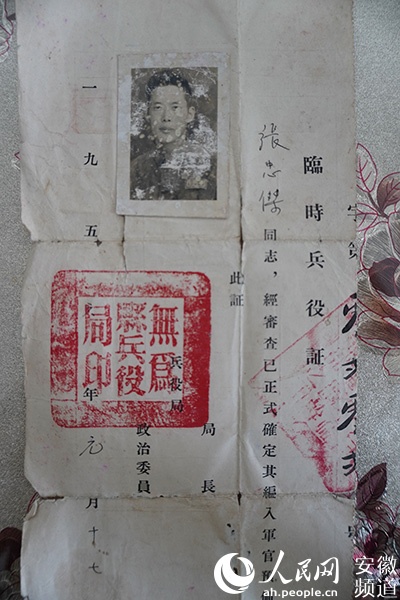 臨時兵役証
張忠傑同志，經審查已正式確定其編入軍官預
此証
兵役局
局長
政治委員
一九五 年元月十七
無為縣兵役局印
人民网 安徽频道
ah.people.cn